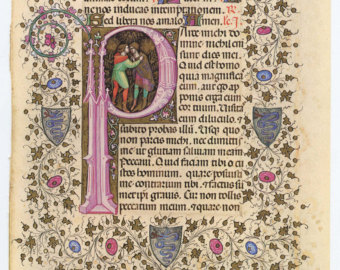 ne nos inducas in temptationem. R
Sed libera nos a malo. Amen. lc. I.
Parce michi do
mine nichil enim
sunt dies mei.
Quid est homo
quia magnifica
eum aut quid
apponis erga eum
cor tuum Visitas
eum diluculo. et
subito probas illu(m). Usq(ue) quo
non parcis michi. nec dimittis
me ut glutiam salivam meam
peccavi. Quid faciam tibi o cu
stos hominum. quare posuisti
me contrarium tibi. et factus su(m)
michi ipsi gravis. Cur non tollis
peccatum meum. et quare non